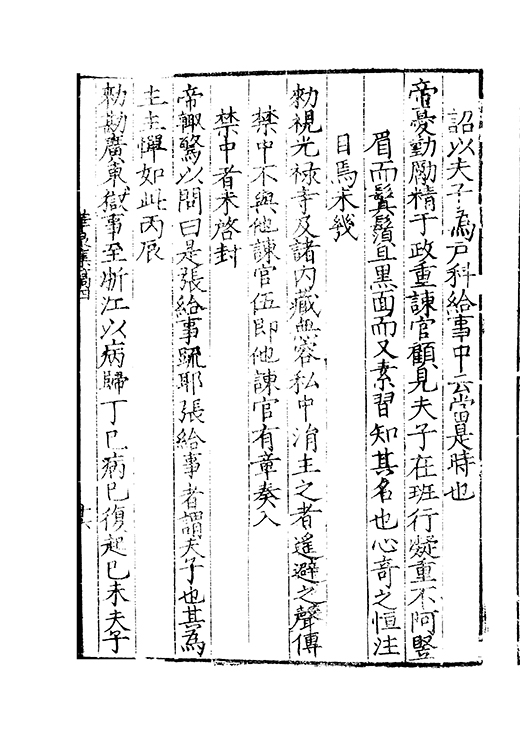 詔以夫子為戶科給事中云當是時也
帝憂勤勵精于政重諫官顧見夫子在班行凝重不阿豎
眉而鬒鬚且黑面而又素習知其名也心奇之恒注
目焉未幾
勑視光祿寺及諸內藏無容私中涓主之者遙避之聲傳
禁中不與他諫官伍即他諫官有章奏入
禁中者未啓封
帝輙驚以問曰是張給事疏耶張給事者謂夫子也其為
主主憚如此丙辰
勑勘廣東獄事至浙江以病歸丁巳病已復起己未夫子
十六